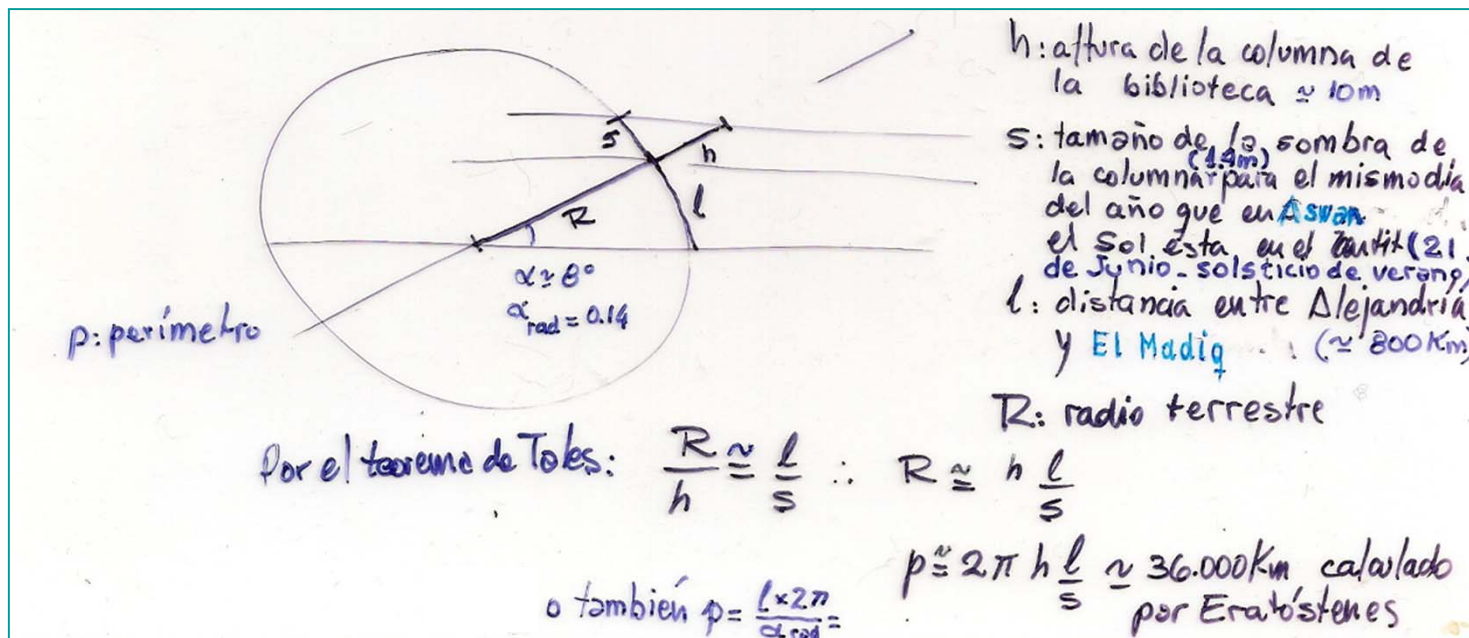 h: altura de la columna de
la biblioteca ≃ 10m
s: tamaño de la sombra de
la columna (1.4m) para el mismo dia
del año que en Aswan
el Sol esta en el (21
de Junio - solsticio de verano)
l: distancia entre Alejandría
y El Madiq (≃ 800 Km)
R: radio terrestre
s
h
R
l
α ≃ 8°
α rad = 0.14
p: perímetro
Por el teorema de Tales: R/h ≅ l/s ∴ R ≅ h l/s
p ≅ 2π h l/s ≃ 36.000 Km calculado
por Eratóstenes
o también p = l×2π/α rad =